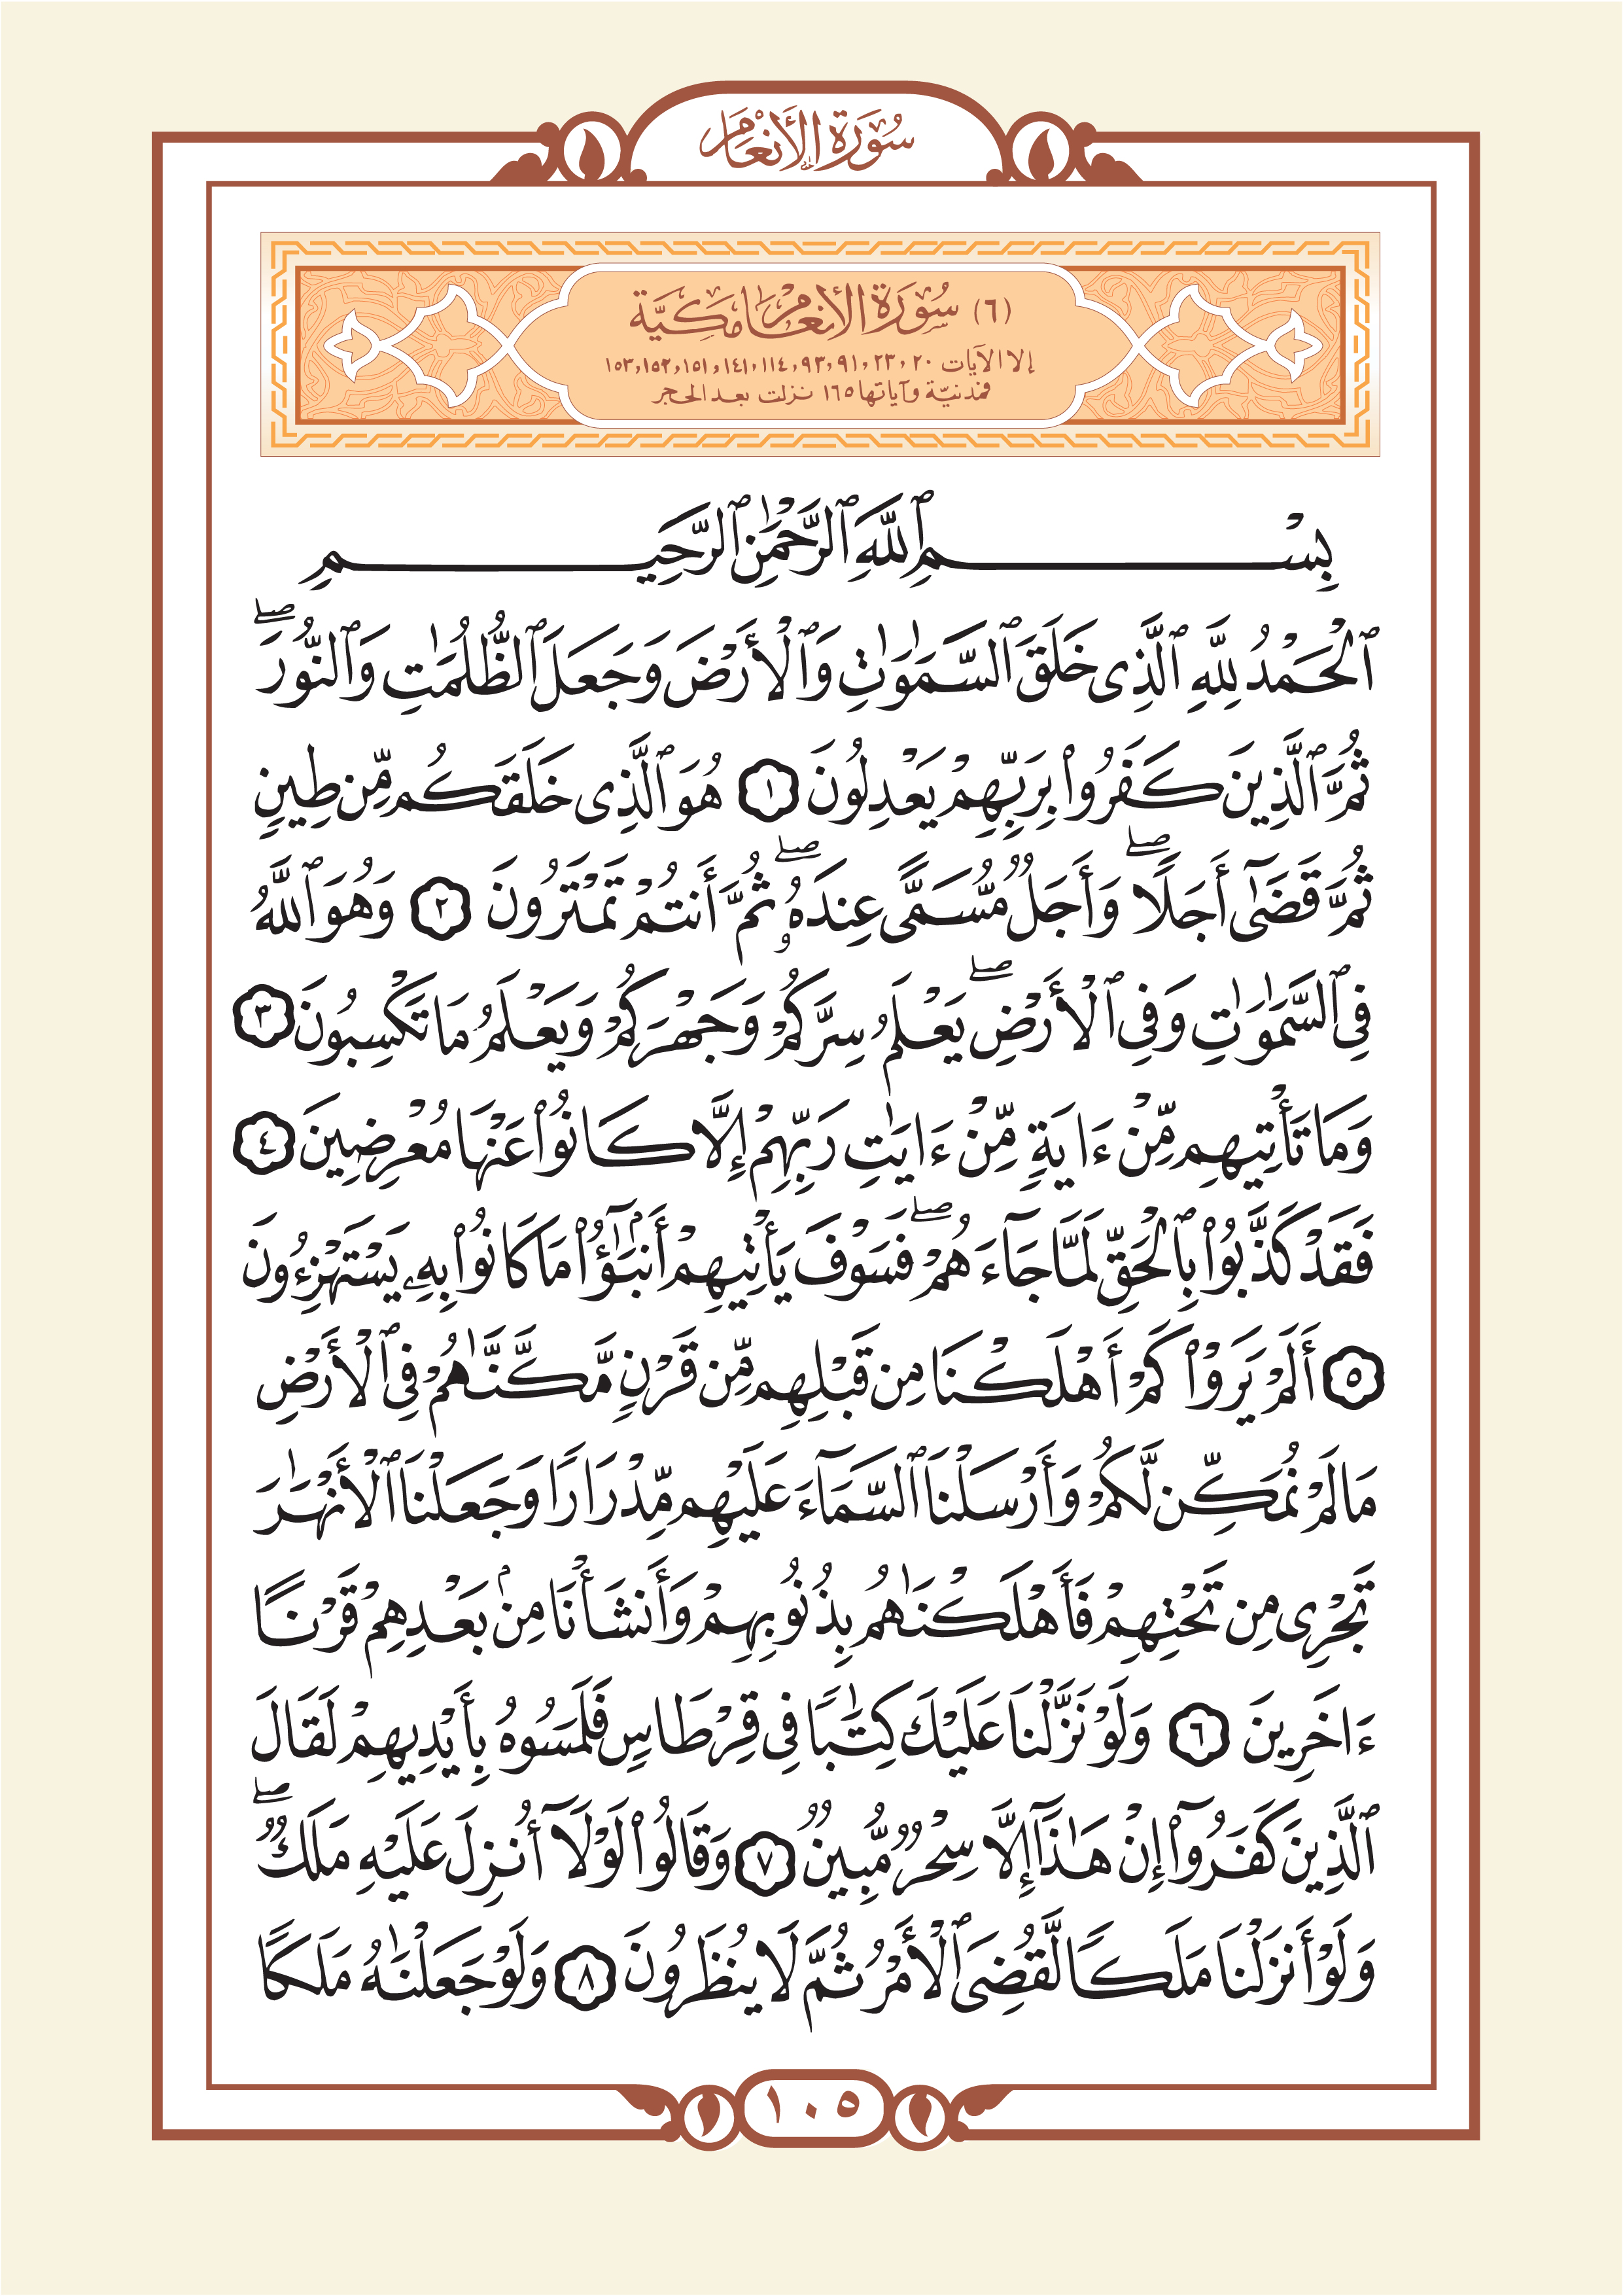 سُورَةُ الأَنْعَامِ
(٦) سُورَةُ الأَنعَام مَكيَّة
إلا الآيات ٢٠ ,٢٣ ,٩١ ,٩٣ ,١١٤ ,١٤١ ,١٥١ ,١٥٢ ,١٥٣
فمدنيّة وآياتها ١٦٥ نزلت بعد الحجر
بِسْمِ ٱللَّهِ ٱلرَّحْمَٰنِ ٱلرَّحِيمِ
ٱلْحَمْدُ لِلَّهِ ٱلَّذِى خَلَقَ ٱلسَّمَٰوَٰتِ وَٱلْأَرْضَ وَجَعَلَ ٱلظُّلُمَٰتِ وَٱلنُّورَ ۖ
ثُمَّ ٱلَّذِينَ كَفَرُوا۟ بِرَبِّهِمْ يَعْدِلُونَ ١ هُوَ ٱلَّذِى خَلَقَكُم مِّن طِينٍ
ثُمَّ قَضَىٰٓ أَجَلًا ۖ وَأَجَلٌ مُّسَمًّى عِندَهُۥ ۖ ثُمَّ أَنتُمْ تَمْتَرُونَ ٢ وَهُوَ ٱللَّهُ
فِى ٱلسَّمَٰوَٰتِ وَفِى ٱلْأَرْضِ ۖ يَعْلَمُ سِرَّكُمْ وَجَهْرَكُمْ وَيَعْلَمُ مَا تَكْسِبُونَ ٣
وَمَا تَأْتِيهِم مِّنْ ءَايَةٍ مِّنْ ءَايَٰتِ رَبِّهِمْ إِلَّا كَانُوا۟ عَنْهَا مُعْرِضِينَ ٤
فَقَدْ كَذَّبُوا۟ بِٱلْحَقِّ لَمَّا جَآءَهُمْ ۖ فَسَوْفَ يَأْتِيهِمْ أَنۢبَٰٓؤُا۟ مَا كَانُوا۟ بِهِۦ يَسْتَهْزِءُونَ
٥ أَلَمْ يَرَوْا۟ كَمْ أَهْلَكْنَا مِن قَبْلِهِم مِّن قَرْنٍ مَّكَّنَّٰهُمْ فِى ٱلْأَرْضِ
مَا لَمْ نُمَكِّن لَّكُمْ وَأَرْسَلْنَا ٱلسَّمَآءَ عَلَيْهِم مِّدْرَارًا وَجَعَلْنَا ٱلْأَنْهَٰرَ
تَجْرِى مِن تَحْتِهِمْ فَأَهْلَكْنَٰهُم بِذُنُوبِهِمْ وَأَنشَأْنَا مِنۢ بَعْدِهِمْ قَرْنًا
ءَاخَرِينَ ٦ وَلَوْ نَزَّلْنَا عَلَيْكَ كِتَٰبًا فِى قِرْطَاسٍ فَلَمَسُوهُ بِأَيْدِيهِمْ لَقَالَ
ٱلَّذِينَ كَفَرُوٓا۟ إِنْ هَٰذَآ إِلَّا سِحْرٌ مُّبِينٌ ٧ وَقَالُوا۟ لَوْلَآ أُنزِلَ عَلَيْهِ مَلَكٌ ۖ
وَلَوْ أَنزَلْنَا مَلَكًا لَّقُضِىَ ٱلْأَمْرُ ثُمَّ لَا يُنظَرُونَ ٨ وَلَوْ جَعَلْنَٰهُ مَلَكًا
١٠٥